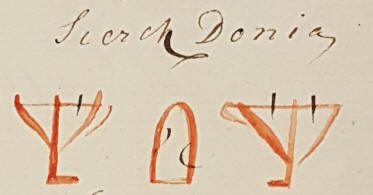 Sierck Donia